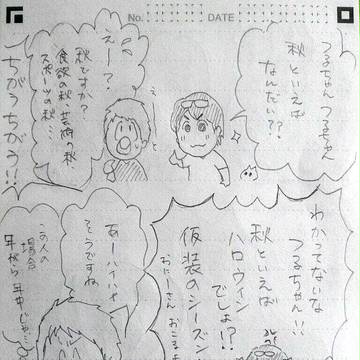 No.
DATE
つるちゃん つるちゃん
秋といえば
なんだい??
えー?
秋ですか?
食欲の秋、芸術の秋、
スポーツの秋…
えっと
ちがうちがう!!
わかってないな
つるちゃん!!
秋といえば
ハロウィン
でしょ!?
仮装のシーズン
あーハイハイ
そうですね
この人の
場合
年がら年中じゃ…